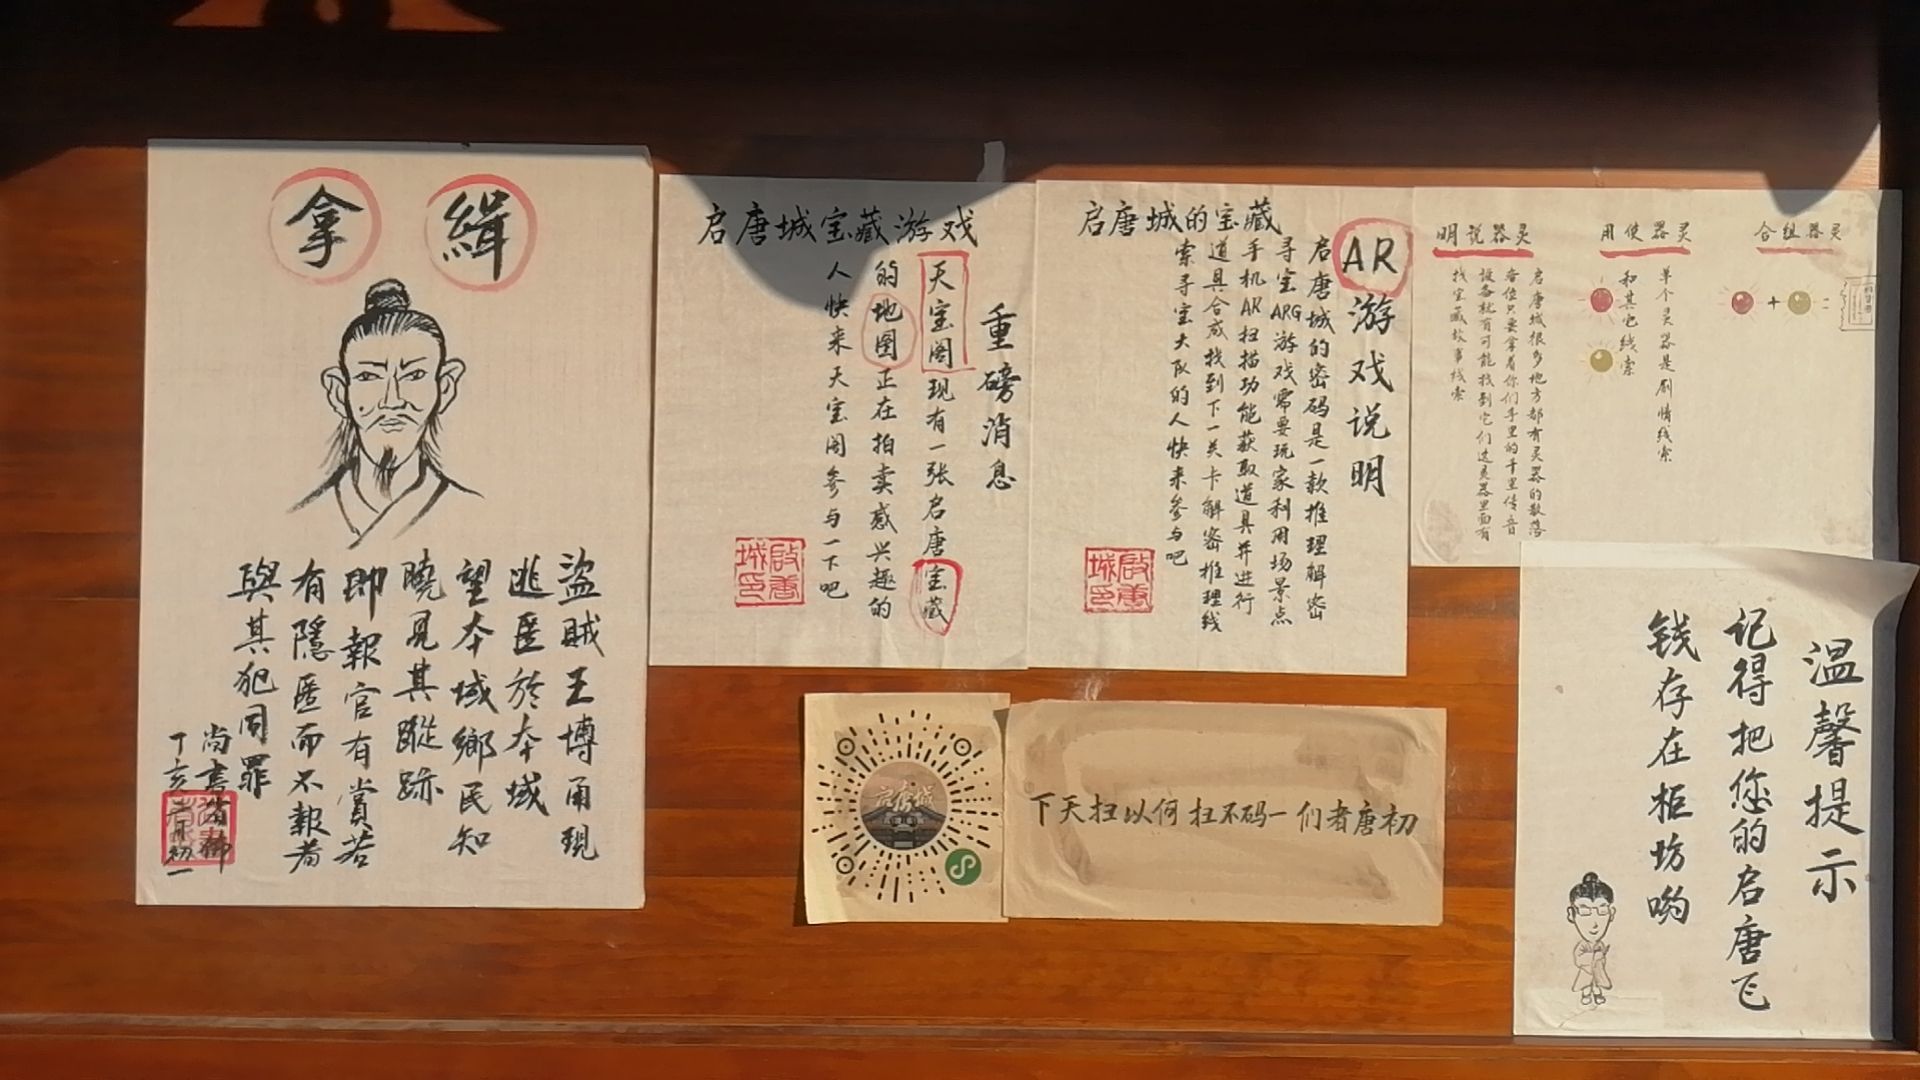 緝拿
盜賊王博甬現
逃匿於本域
望本域鄉民知
曉見其蹤跡
即報官有賞若
有隱匿而不報者
與其犯同罪
尚書省御
启唐城宝藏游戏
重磅消息
天宝阁现有一张启唐宝藏
的地图正在拍卖感兴趣的
人快来天宝阁参与一下吧
啟唐城印
启唐城的宝藏
AR游戏说明
启唐城的密码是一款推理解密
寻宝ARG游戏需要玩家利用场景点
手机AR扫描功能获取道具并进行
道具合成找到下一关卡解密推理线
索寻宝大队的人快来参与吧
啟唐城印
灵器说明
启唐城很多地方都有灵器的散落
各位只要拿着你们手里的千里传音
设备就有可能找到它们这灵器里面有
找宝藏故事线索
灵器使用
单个灵器是剧情线索
和其它线索
灵器组合
+
=
启唐城
初唐者们一码不扫何以扫天下
温馨提示
记得把您的启唐飞
钱存在柜坊哟